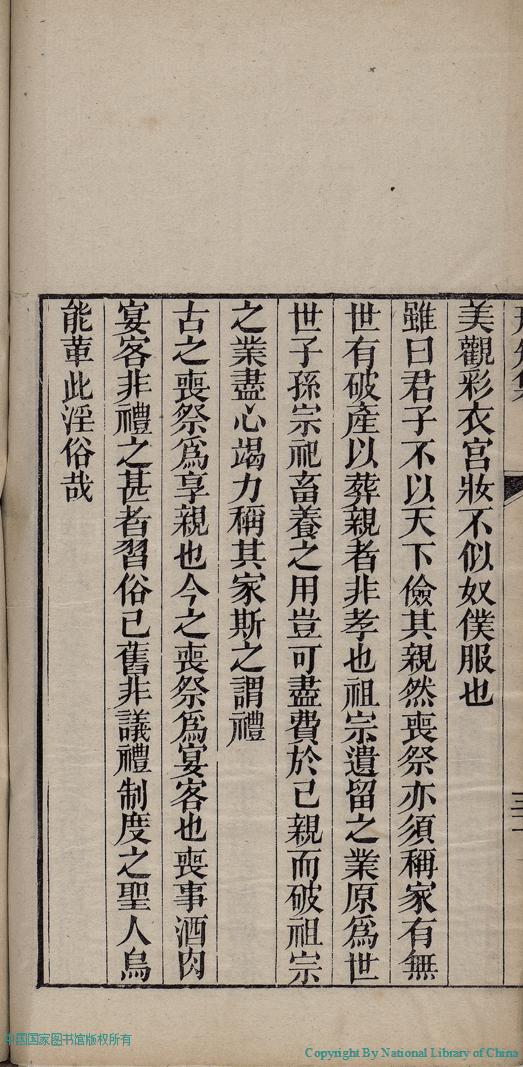 美觀彩衣宮妝不似奴僕服也
雖曰君子不以天下儉其親然喪祭亦須稱家有無
世有破產以葬親者非孝也祖宗遺留之業原為世
世子孫宗祀畜養之用豈可盡費於已親而破祖宗
之業盡心竭力稱其家斯之謂禮
古之喪祭為享親也今之喪祭為宴客也喪事酒肉
宴客非禮之甚者習俗已舊非議禮制度之聖人烏
能革此淫俗哉
中国国家图书馆版权所有
Copyright By National Library of China